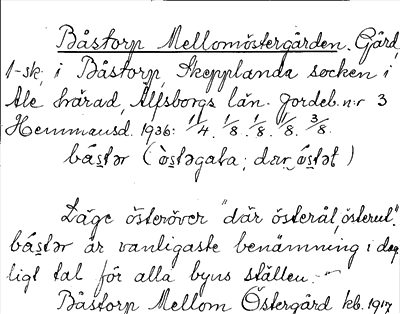 Båstorp Mellomöstergården. Gård,
1-sk, i Båstorp, Skepplanda socken i
Ale härad, Älfsborgs län. Jordeb. n:r 3
Hemmansd. 1936: 1/4. 1/8. 1/8. 1/8. 3/8.
båstər (östəgata; där östət)
Läge österöver "där österål, österut".
båstər är vanligaste benämning i dag
ligt tal för alla byns ställen.
Båstorp Mellom Östergård kb. 1917